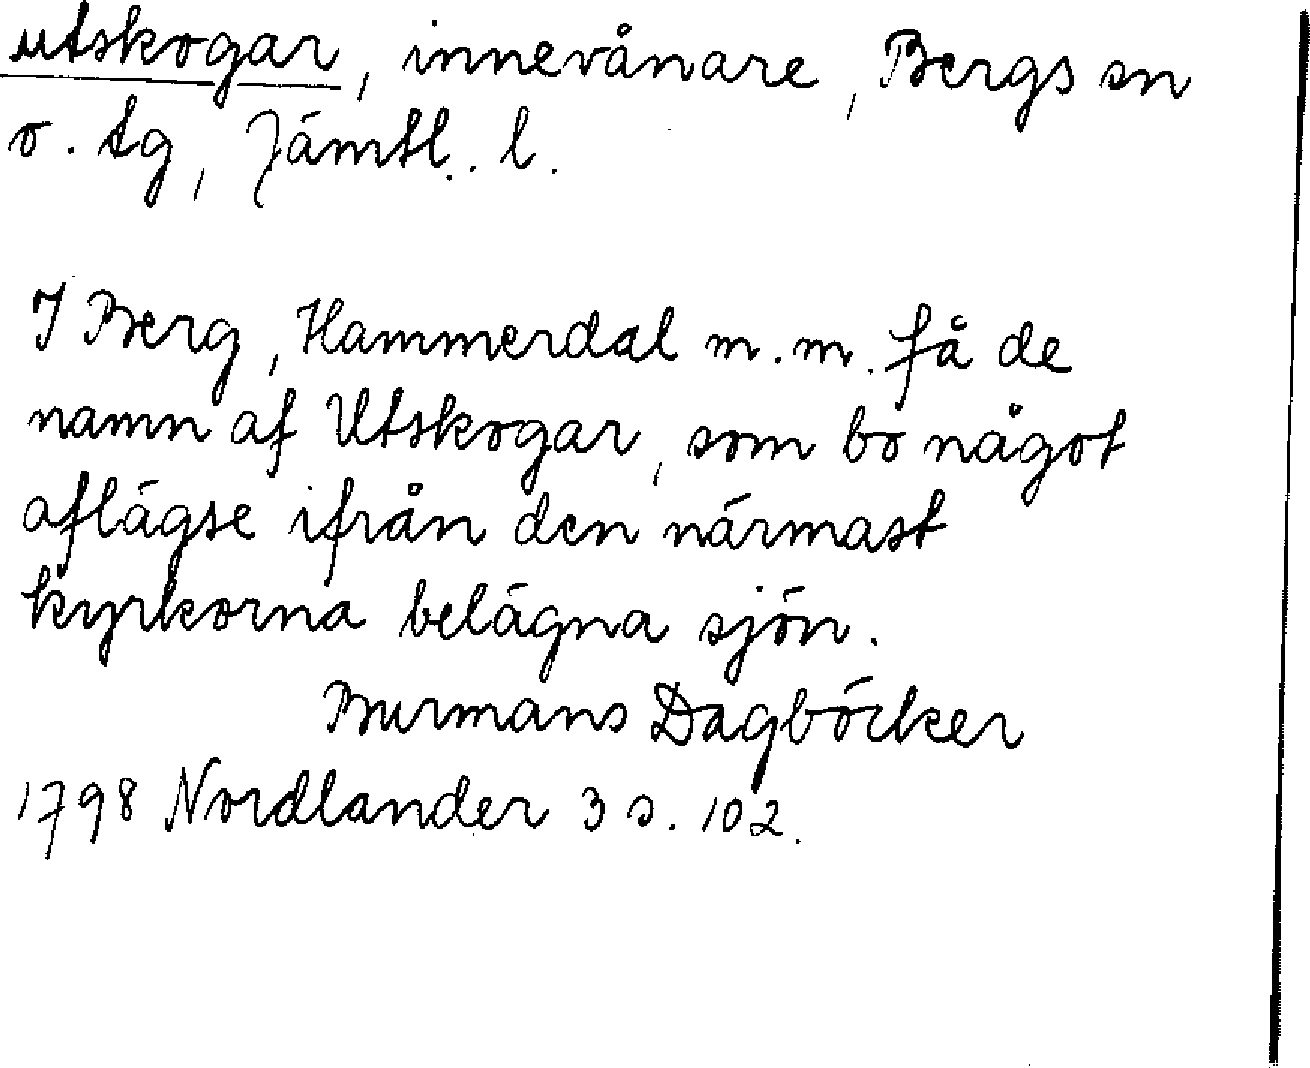 utskogar, innevånare, Bergs sn
o. tg, Jämtl. l.
I Berg, Hammerdal m.m. få de
namn af Utskogar, som bo något
aflägse ifrån den närmast
kyrkorna belägna sjön.
Burmans Dagböcker
1798 Nordlander 3 s. 102.